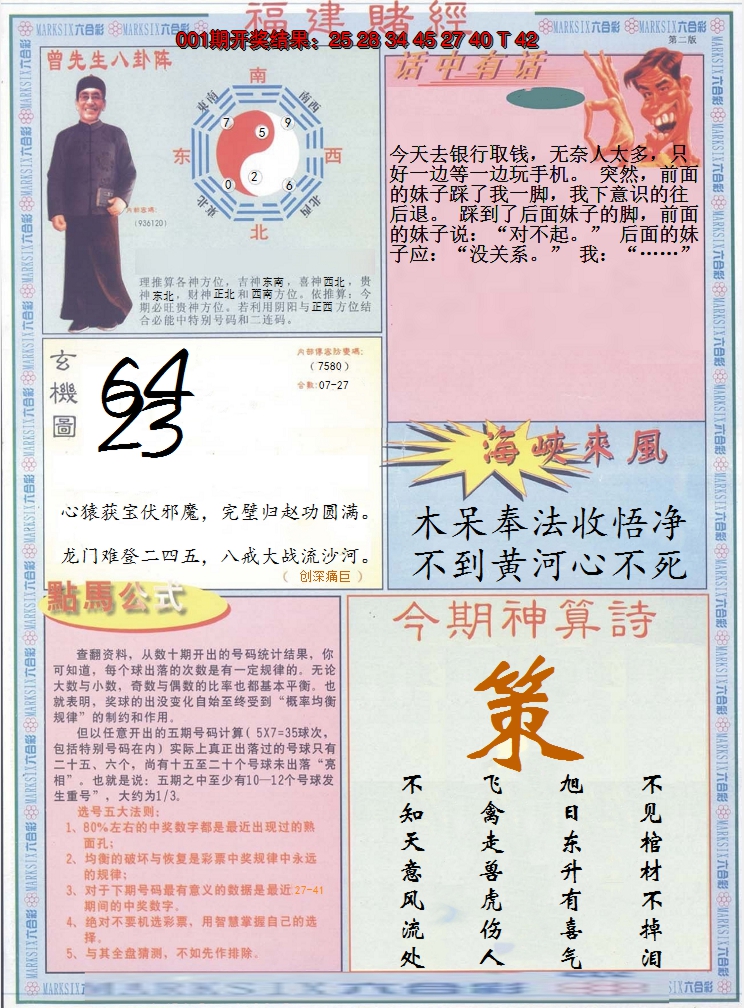 福建賭經
001期开奖结果：25 28 34 45 27 40 T 42
第二版
MARKSIX六合彩
曾先生八卦阵
南
东南
南西
7
5
9
东
西
0
2
6
东北
北西
北
内部密碼:
（936120）
理推算各神方位，吉神东南，喜神西北，贵
神东北，财神正北和西南方位。依推算：今
期必旺贵神方位。若利用阴阳与正西方位结
合必能中特别号码和二连码。
话中有话
今天去银行取钱，无奈人太多，只
好一边等一边玩手机。 突然，前面
的妹子踩了我一脚，我下意识的往
后退。 踩到了后面妹子的脚，前面
的妹子说：“对不起。” 后面的妹
子应：“没关系。” 我：“……”
玄機圖
64
23
（7580）
合数:07-27
心猿获宝伏邪魔，完璧归赵功圆满。
龙门难登二四五，八戒大战流沙河。
（ 创深痛巨 ）
海峽來風
木呆奉法收悟净
不到黄河心不死
點馬公式
查翻资料，从数十期开出的号码统计结果，你
可知道，每个球出落的次数是有一定规律的。无论
大数与小数，奇数与偶数的比率也都基本平衡。也
就表明，奖球的出没变化自始至终受到“概率均衡
规律”的制约和作用。
但以任意开出的五期号码计算（5X7=35球次，
包括特别号码在内）实际上真正出落过的号球只有
二十五、六个，尚有十五至二十个号球未出落“亮
相”。也就是说：五期之中至少有10—12个号球发
生重号”，大约为1/3。
选号五大法则：
1、80%左右的中奖数字都是最近出现过的熟
面孔；
2、均衡的破坏与恢复是彩票中奖规律中永远
的规律；
3、对于下期号码最有意义的数据是最近27-41
期间的中奖数字。
4、绝对不要机选彩票，用智慧掌握自己的选
择。
5、与其全盘猜测，不如先作排除。
今期神算詩
策
不见棺材不掉泪
旭日东升有喜气
飞禽走兽虎伤人
不知天意风流处